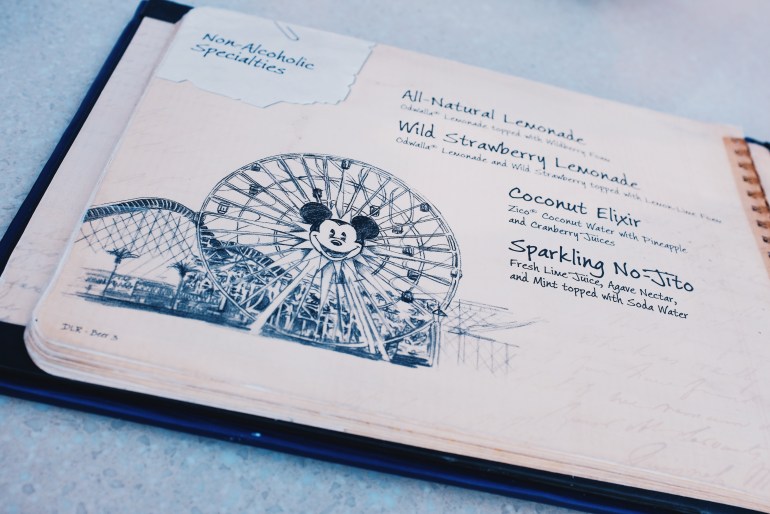 Non-Alcoholic
Specialties
All-Natural Lemonade
Odwalla® Lemonade topped with Wildberry Foam
Wild Strawberry Lemonade
Odwalla® Lemonade and Wild Strawberry topped with Lemon-Lime Foam
Coconut Elixir
Zico® Coconut Water with Pineapple
and Cranberry Juices
Sparkling No-Jito
Fresh Lime Juice, Agave Nectar,
and Mint topped with Soda Water
DLR - Beer 3